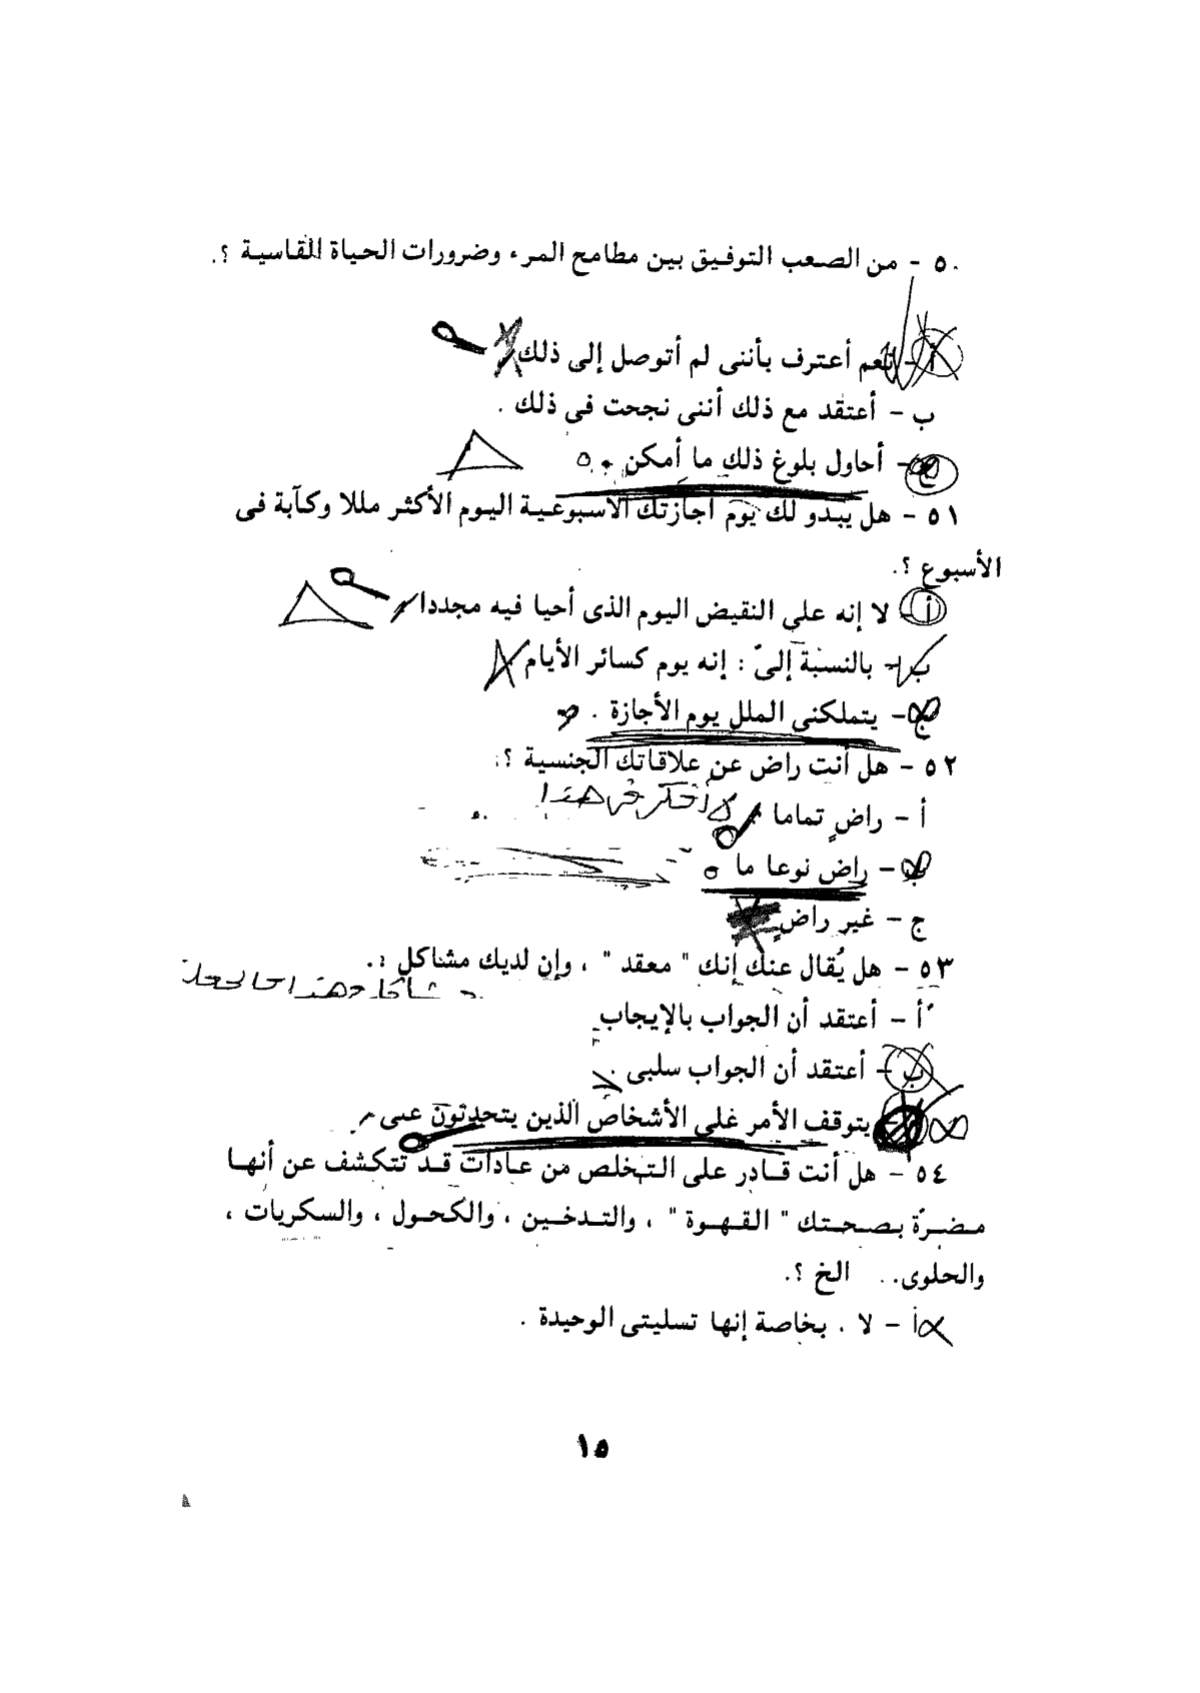 ٥٠ - من الصعب التوفيق بين مطامح المرء وضرورات الحياة القاسية ؟.
أ - نعم أعترف بأننى لم أتوصل إلى ذلك
ب - أعتقد مع ذلك أننى نجحت فى ذلك .
ج - أحاول بلوغ ذلك ما أمكن .
٥١ - هل يبدو لك يوم اجازتك الأسبوعية اليوم الأكثر مللا وكآبة فى
الأسبوع ؟.
أ - لا إنه على النقيض اليوم الذى أحيا فيه مجددا
ب - بالنسبة إلىّ : إنه يوم كسائر الأيام
ج - يتملكنى الملل يوم الأجازة .
٥٢ - هل أنت راض عن علاقاتك الجنسية ؟.
لا أفكر فى هذا
أ - راضٍ تماما
ب - راض نوعا ما
ج - غير راضٍ
٥٣ - هل يُقال عنك إنك " معقد " ، وإن لديك مشاكل ؟.
أ - أعتقد أن الجواب بالإيجاب
ب - أعتقد أن الجواب سلبى .
يتوقف الأمر على الأشخاص الذين يتحدثون عنى
٥٤ - هل أنت قادر على التخلص من عادات قد تتكشف عن أنها
مضرّة بصحتك " القهوة " ، والتدخين ، والكحول ، والسكريات ،
والحلوى. . الخ ؟.
أ - لا . بخاصة إنها تسليتى الوحيدة .
١٥